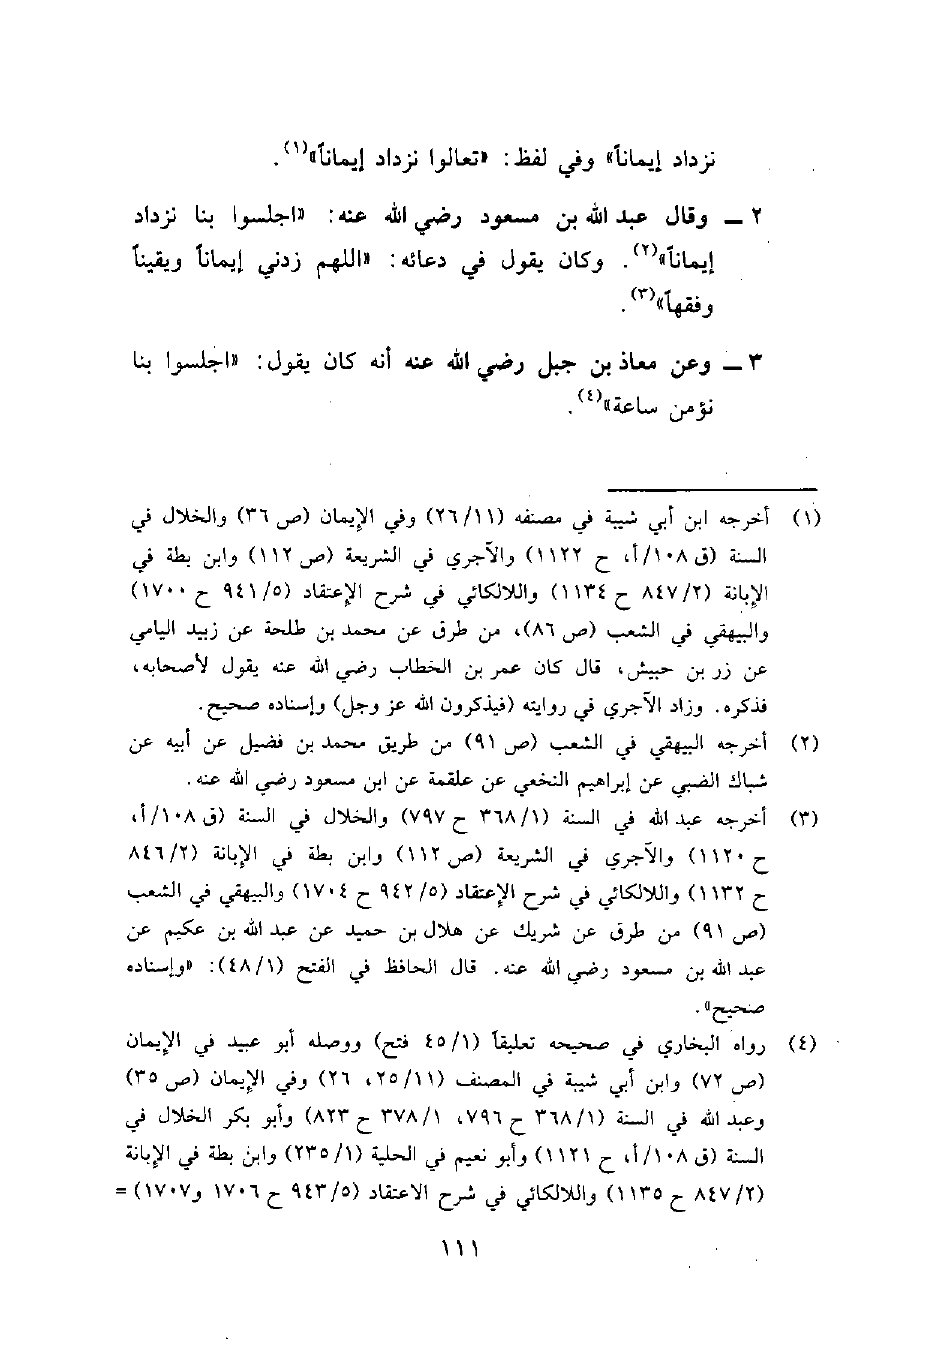 نزداد إيماناً» وفي لفظ: «تعالوا نزداد إيماناً»(١).
٢ ــ وقال عبد الله بن مسعود رضي الله عنه: «اجلسوا بنا نزداد
إيماناً»(٢). وكان يقول في دعائه: «اللهم زدني إيماناً ويقيناً
وفقهاً»(٣).
٣ ــ وعن معاذ بن جبل رضي الله عنه أنه كان يقول: «اجلسوا بنا
نؤمن ساعة»(٤).
(١) أخرجه ابن أبي شيبة في مصنفه (٢٦/١١) وفي الإيمان (ص ٣٦) والخلال في
السنة (ق ١٠٨/أ، ح ١١٢٢) والآجري في الشريعة (ص ١١٢) وابن بطة في
الإبانة (٨٤٧/٢ ح ١١٣٤) واللالكائي في شرح الإعتقاد (٩٤١/٥ ح ١٧٠٠)
والبيهقي في الشعب (ص ٨٦)، من طرق عن محمد بن طلحة عن زبيد اليامي
عن زر بن حبيش، قال كان عمر بن الخطاب رضي الله عنه يقول لأصحابه،
فذكره. وزاد الآجري في روايته (فيذكرون الله عز وجل) وإسناده صحيح.
(٢) أخرجه البيهقي في الشعب (ص ٩١) من طريق محمد بن فضيل عن أبيه عن
شباك الضبي عن إبراهيم النخعي عن علقمة عن ابن مسعود رضي الله عنه.
(٣) أخرجه عبد الله في السنة (٣٦٨/١ ح ٧٩٧) والخلال في السنة (ق ١٠٨/أ،
ح ١١٢٠) والآجري في الشريعة (ص ١١٢) وابن بطة في الإبانة (٨٤٦/٢
ح ١١٣٢) واللالكائي في شرح الإعتقاد (٩٤٢/٥ ح ١٧٠٤) والبيهقي في الشعب
(ص ٩١) من طرق عن شريك عن هلال بن حميد عن عبد الله بن عكيم عن
عبد الله بن مسعود رضي الله عنه. قال الحافظ في الفتح (٤٨/١): «وإسناده
صحيح».
(٤) رواه البخاري في صحيحه تعليقاً (٤٥/١ فتح) ووصله أبو عبيد في الإيمان
(ص ٧٢) وابن أبي شيبة في المصنف (٢٥/١١، ٢٦) وفي الإيمان (ص ٣٥)
وعبد الله في السنة (٣٦٨/١ ح ٧٩٦، ٣٧٨/١ ح ٨٢٣) وأبو بكر الخلال في
السنة (ق ١٠٨/أ، ح ١١٢١) وأبو نعيم في الحلية (٢٣٥/١) وابن بطة في الإبانة
(٨٤٧/٢ ح ١١٣٥) واللالكائي في شرح الاعتقاد (٩٤٣/٥ ح ١٧٠٦ و١٧٠٧) =
١١١